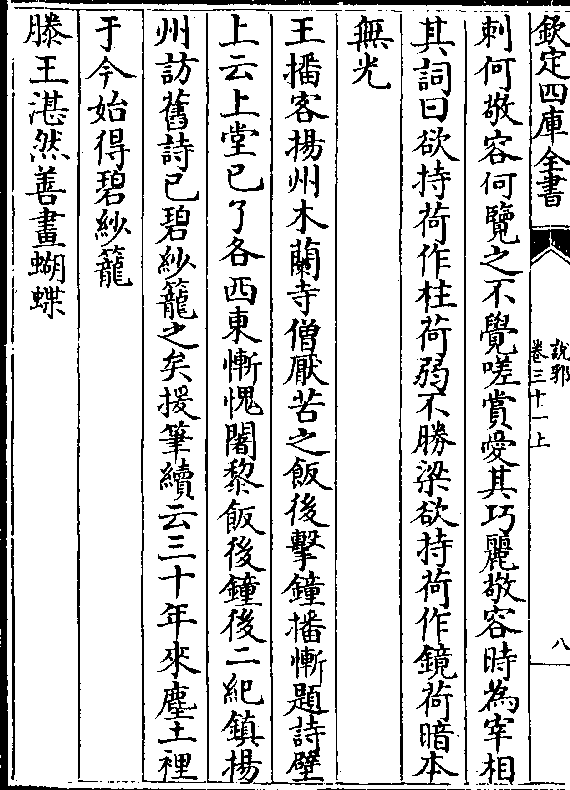 欽定四庫全書
說郛
卷三十一上
八
刺何敬容何覽之不覺嗟賞愛其巧麗敬容時為宰相
其詞曰欲持荷作柱荷弱不勝梁欲持荷作鏡荷暗本
無光
王播客揚州木蘭寺僧厭苦之飯後擊鐘播慚題詩壁
上云上堂已了各西東慚愧闍黎飯後鐘後二紀鎮揚
州訪舊詩已碧紗籠之矣援筆續云三十年來塵土裡
于今始得碧紗籠
滕王湛然善畫蝴蝶